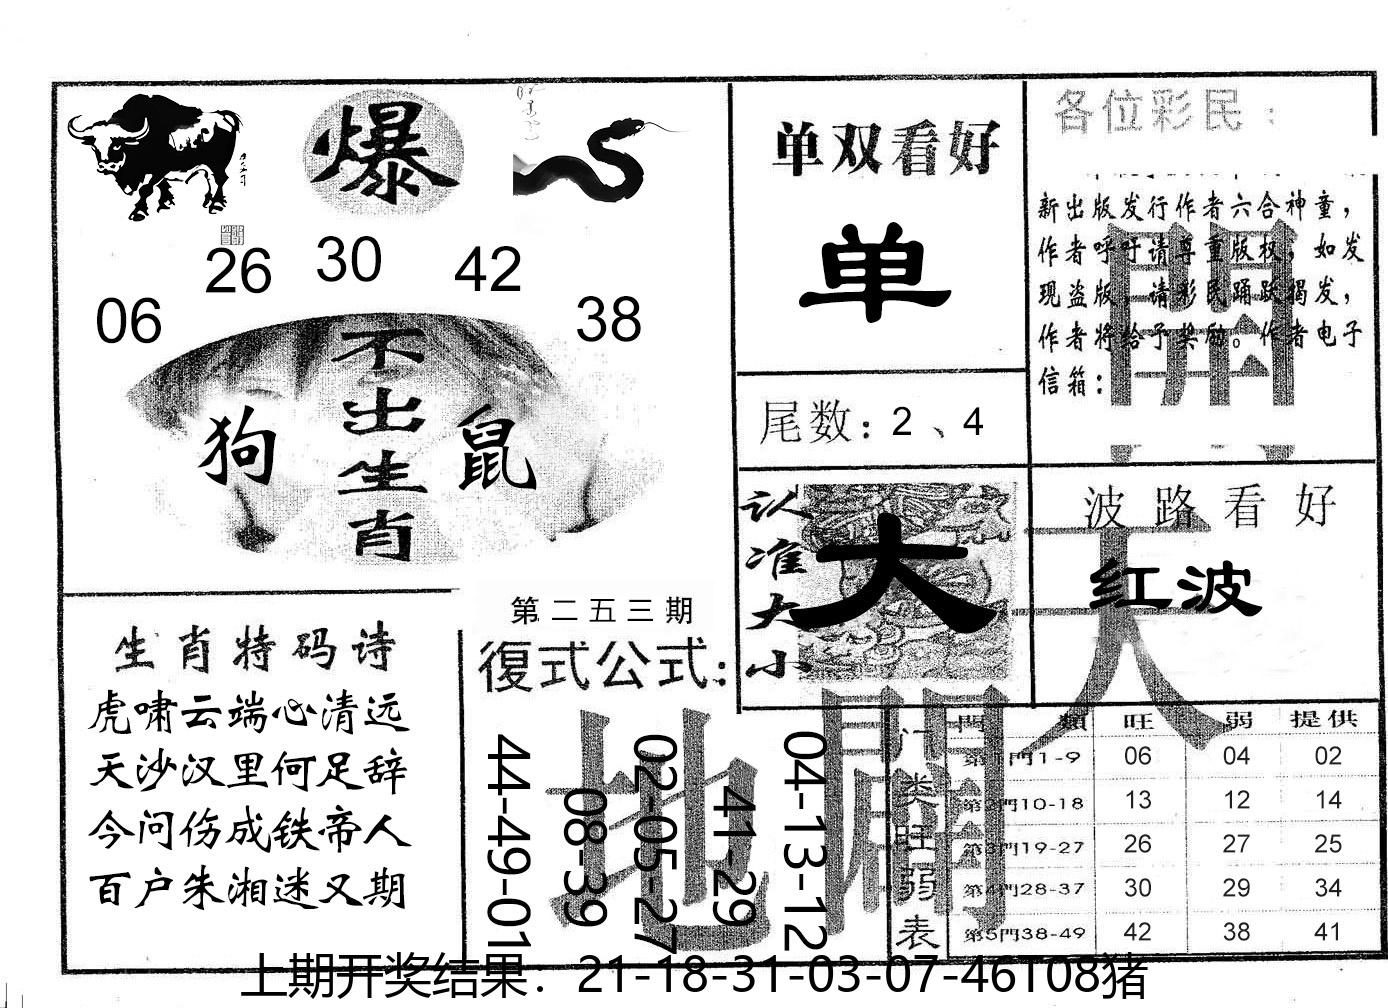 爆
26 30 42
06 38
不出生肖
狗 鼠
单双看好
单
尾数：2、4
各位彩民：
新出版发行作者六合神童，
作者呼吁请尊重版权，如发
现盗版，请彩民踊跃揭发，
作者将给予奖励。作者电子
信箱：
開
认准大小
大
波路看好
红波
天
生肖特码诗
虎啸云端心清远
天沙汉里何足辞
今问伤成铁帝人
百户朱湘迷又期
第二五三期
復式公式：
44-49-01
08-39
02-05-27
41-29
04-13-12
地
門類 旺 弱 提供
第1門1-9 06 04 02
第2門10-18 13 12 14
第3門19-27 26 27 25
第4門28-37 30 29 34
第5門38-49 42 38 41
门类旺弱表
上期开奖结果：21-18-31-03-07-46T08猪